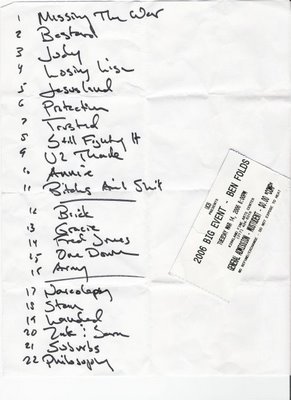 1 Missing The War
2 Bastard
3 Judy
4 Losing Lisa
5 Jesusland
6 Protection
7 Trusted
8 Still Fighting It
9 U2 Thade
10 Annie
11 Bitches Ain't Shit
12 Brick
13 Gracie
14 Fred Jones
15 One Down
16 Army
17 Narcolepsy
18 Stan
19 Landed
20 Zak & Sara
21 Suburbs
22 Philosophy
PRESENTS
2006 BIG EVENT - BEN FOLDS
TUESDAY, MAR 14, 2006 8:00PM
GENERAL ADMISSION - $0.00